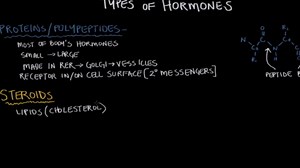 TYPES OF HORMONES
PROTEINS/POLYPEPTIDES-
MOST OF BODY'S HORMONES
SMALL → LARGE
MADE IN RER → GOLGI → VESSICLES
RECEPTOR IN/ON CELL SURFACE [2° MESSENGERS]
STEROIDS
LIPIDS (CHOLESTEROL)
N C C N C
O
R H
PEPTIDE B